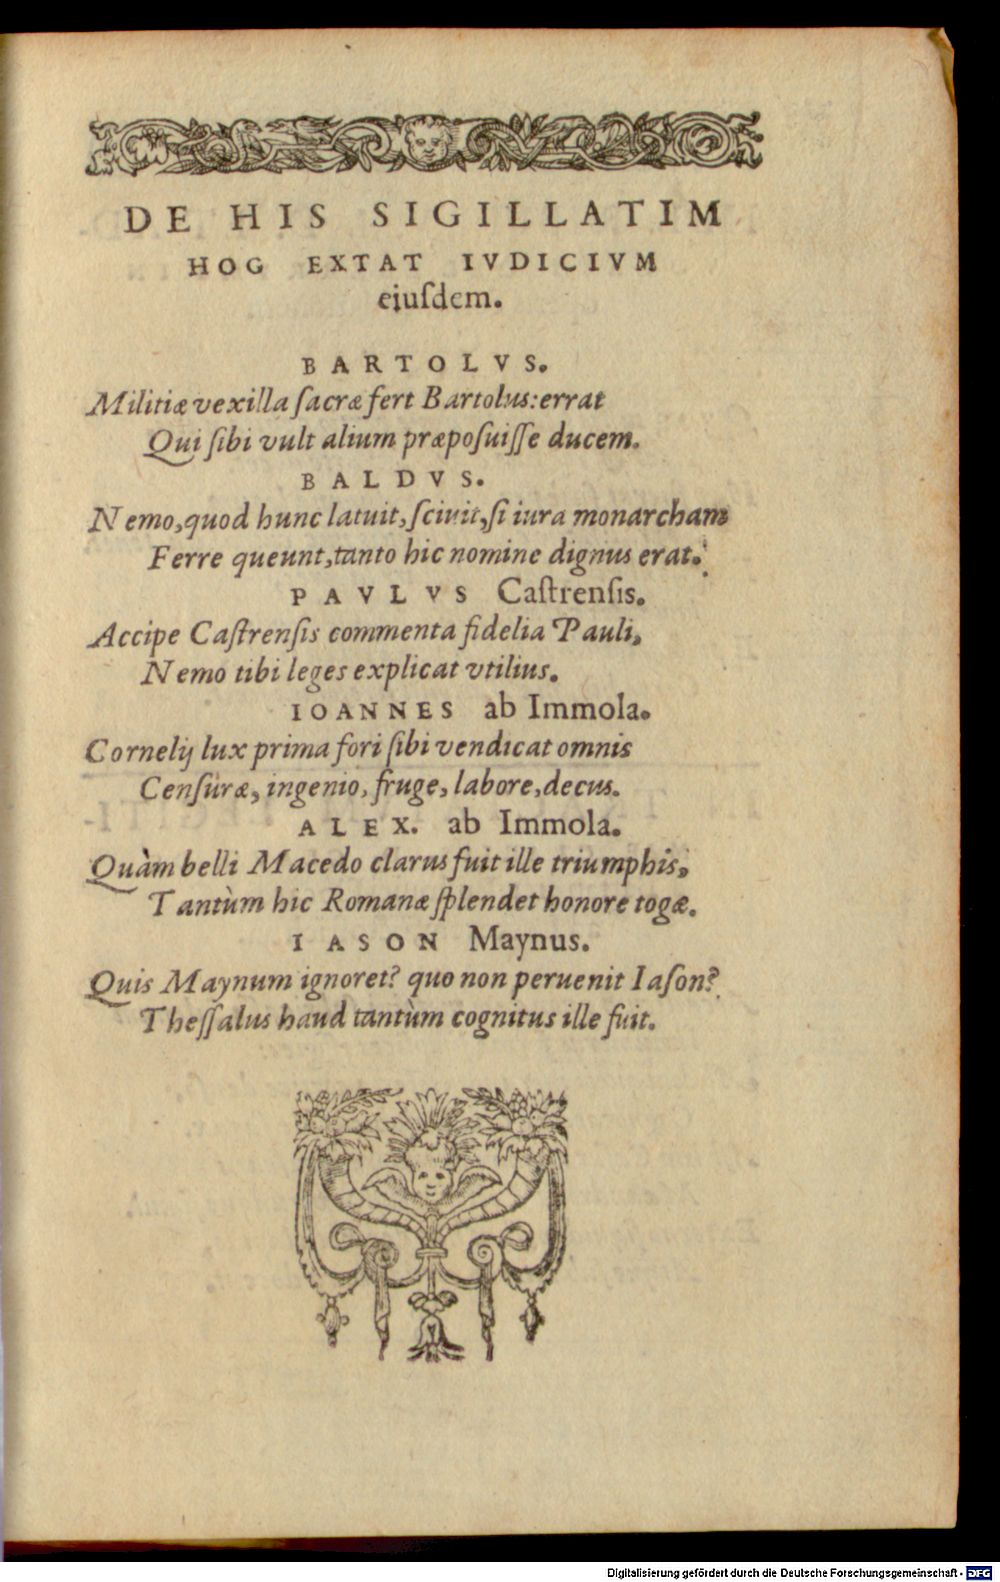 DE HIS SIGILLATIM
HOG EXTAT IVDICIVM
eiuſdem.
BARTOLVS.
Militiæ vexilla ſacræ fert Bartolus: errat
Qui ſibi vult alium præpoſuiſſe ducem.
BALDVS.
Nemo, quod hunc latuit, ſcivit, ſi iura monarcham
Ferre queunt, tanto hic nomine dignus erat.
PAVLVS Caſtrenſis.
Accipe Caſtrenſis commenta fidelia Pauli,
Nemo tibi leges explicat vtilius.
IOANNES ab Immola.
Cornelij lux prima fori ſibi vendicat omnis
Cenſuræ, ingenio, fruge, labore, decus.
ALEX. ab Immola.
Quàm belli Macedo clarus fuit ille triumphis,
Tantùm hic Romanæ ſplendet honore togæ.
IASON Maynus.
Quis Maynum ignoret? quo non peruenit Iaſon?
Theſſalus haud tantùm cognitus ille fuit.
Digitalisierung gefördert durch die Deutsche Forschungsgemeinschaft - DFG